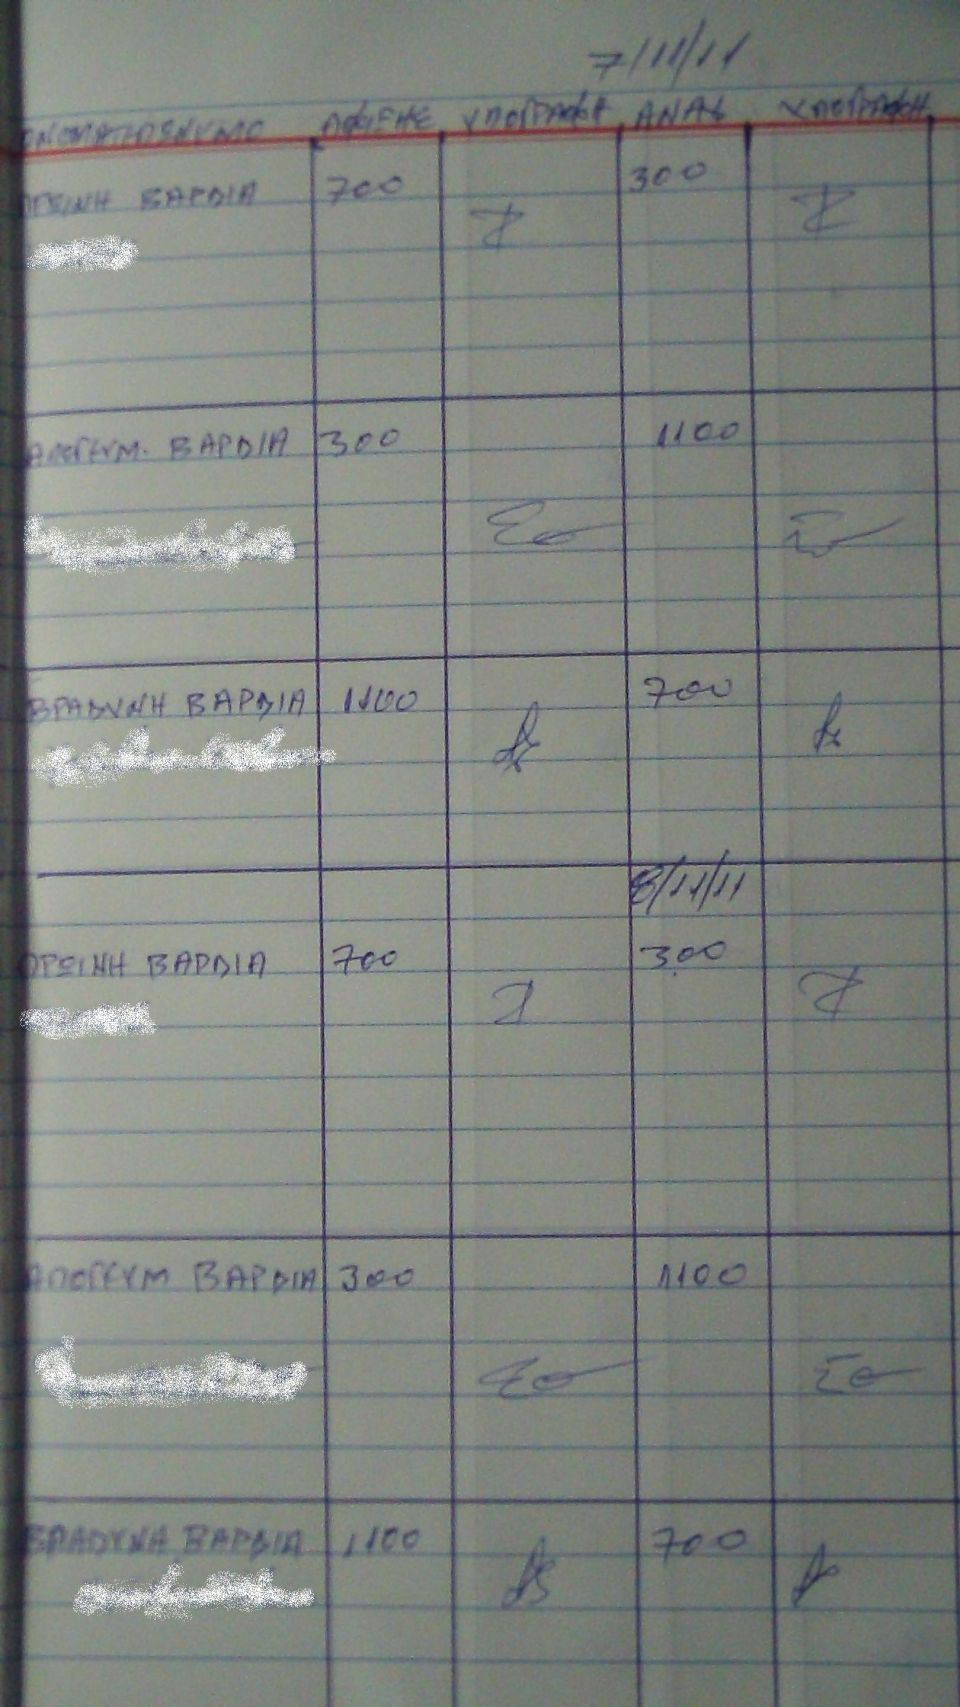 7/11/11
ΟΝΟΜΑΤΕΠΩΝΥΜΟ ΥΠΟΓΡΑΦΗ ΑΝΑΧ ΥΠΟΓΡΑΦΗ
ΠΡΩΙΝΗ ΒΑΡΔΙΑ 700 300
ΑΠΟΓΕΥΜ. ΒΑΡΔΙΑ 300 1100
ΒΡΑΔΥΝΗ ΒΑΡΔΙΑ 1100 700
8/11/11
ΠΡΩΙΝΗ ΒΑΡΔΙΑ 700 300
ΑΠΟΓΕΥΜ ΒΑΡΔΙΑ 300 1100
ΒΡΑΔΥΝΑ ΒΑΡΔΙΑ 1100 700